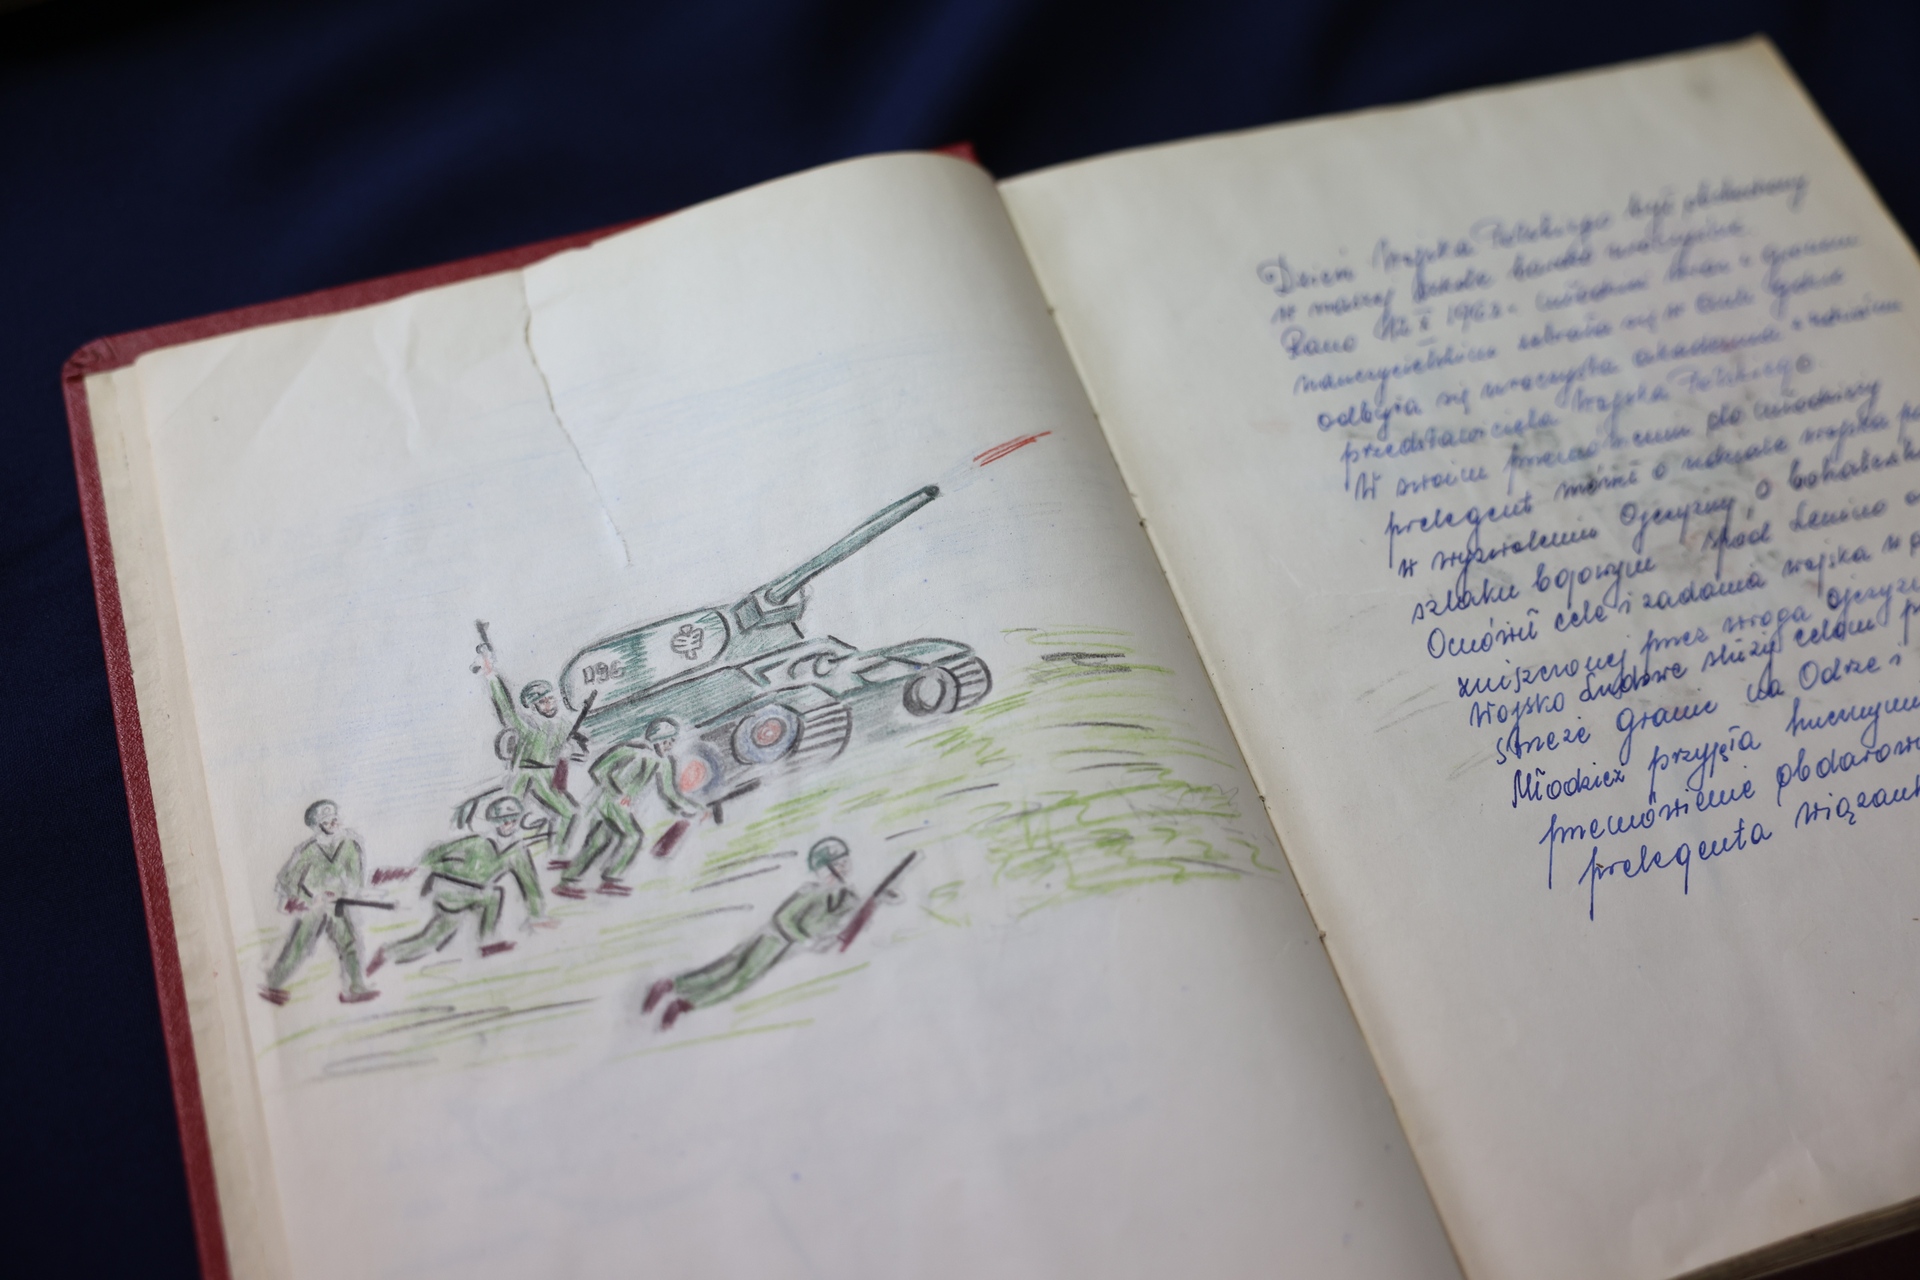 196
Dzień Wojska Polskiego był obchodzony
w naszej szkole bardzo uroczyście.
Rano 12 X 196 młodzież wraz z gronem
nauczycielskim zebrała się w auli gdzie
odbyła się uroczysta akademia z udziałem
przedstawiciela Wojska Polskiego.
W swoim przemówieniu do młodzieży
prelegent mówił o udziale wojska
w wyzwoleniu Ojczyzny, o bohaterskim
szlaku bojowym spod Lenino
Omówił cele i zadania wojska w
zniszczonej przez wroga ojczyźnie
Wojsko Ludowe służy celom
strzeże granic na Odrze i
Młodzież przyjęła hucznymi
przemówienie obdarowując
prelegenta wiązanką